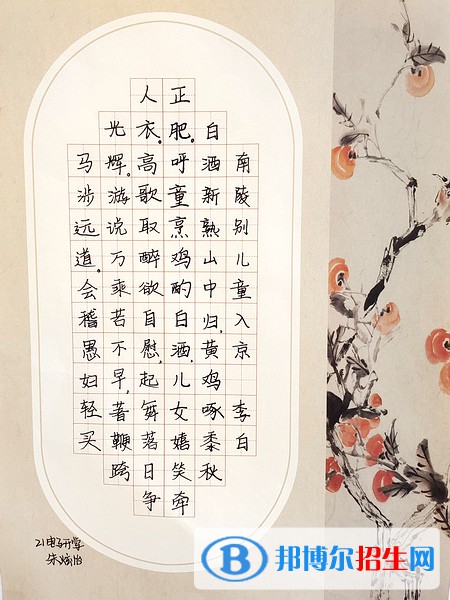 南陵别儿童入京 李白
白酒新熟山中归,黄鸡啄黍秋
正肥。呼童烹鸡酌白酒,儿女嬉笑牵
人衣。高歌取醉欲自慰,起舞落日争
光辉。游说万乘苦不早,著鞭跨
马涉远道。会稽愚妇轻买
B 邦博尔招生网